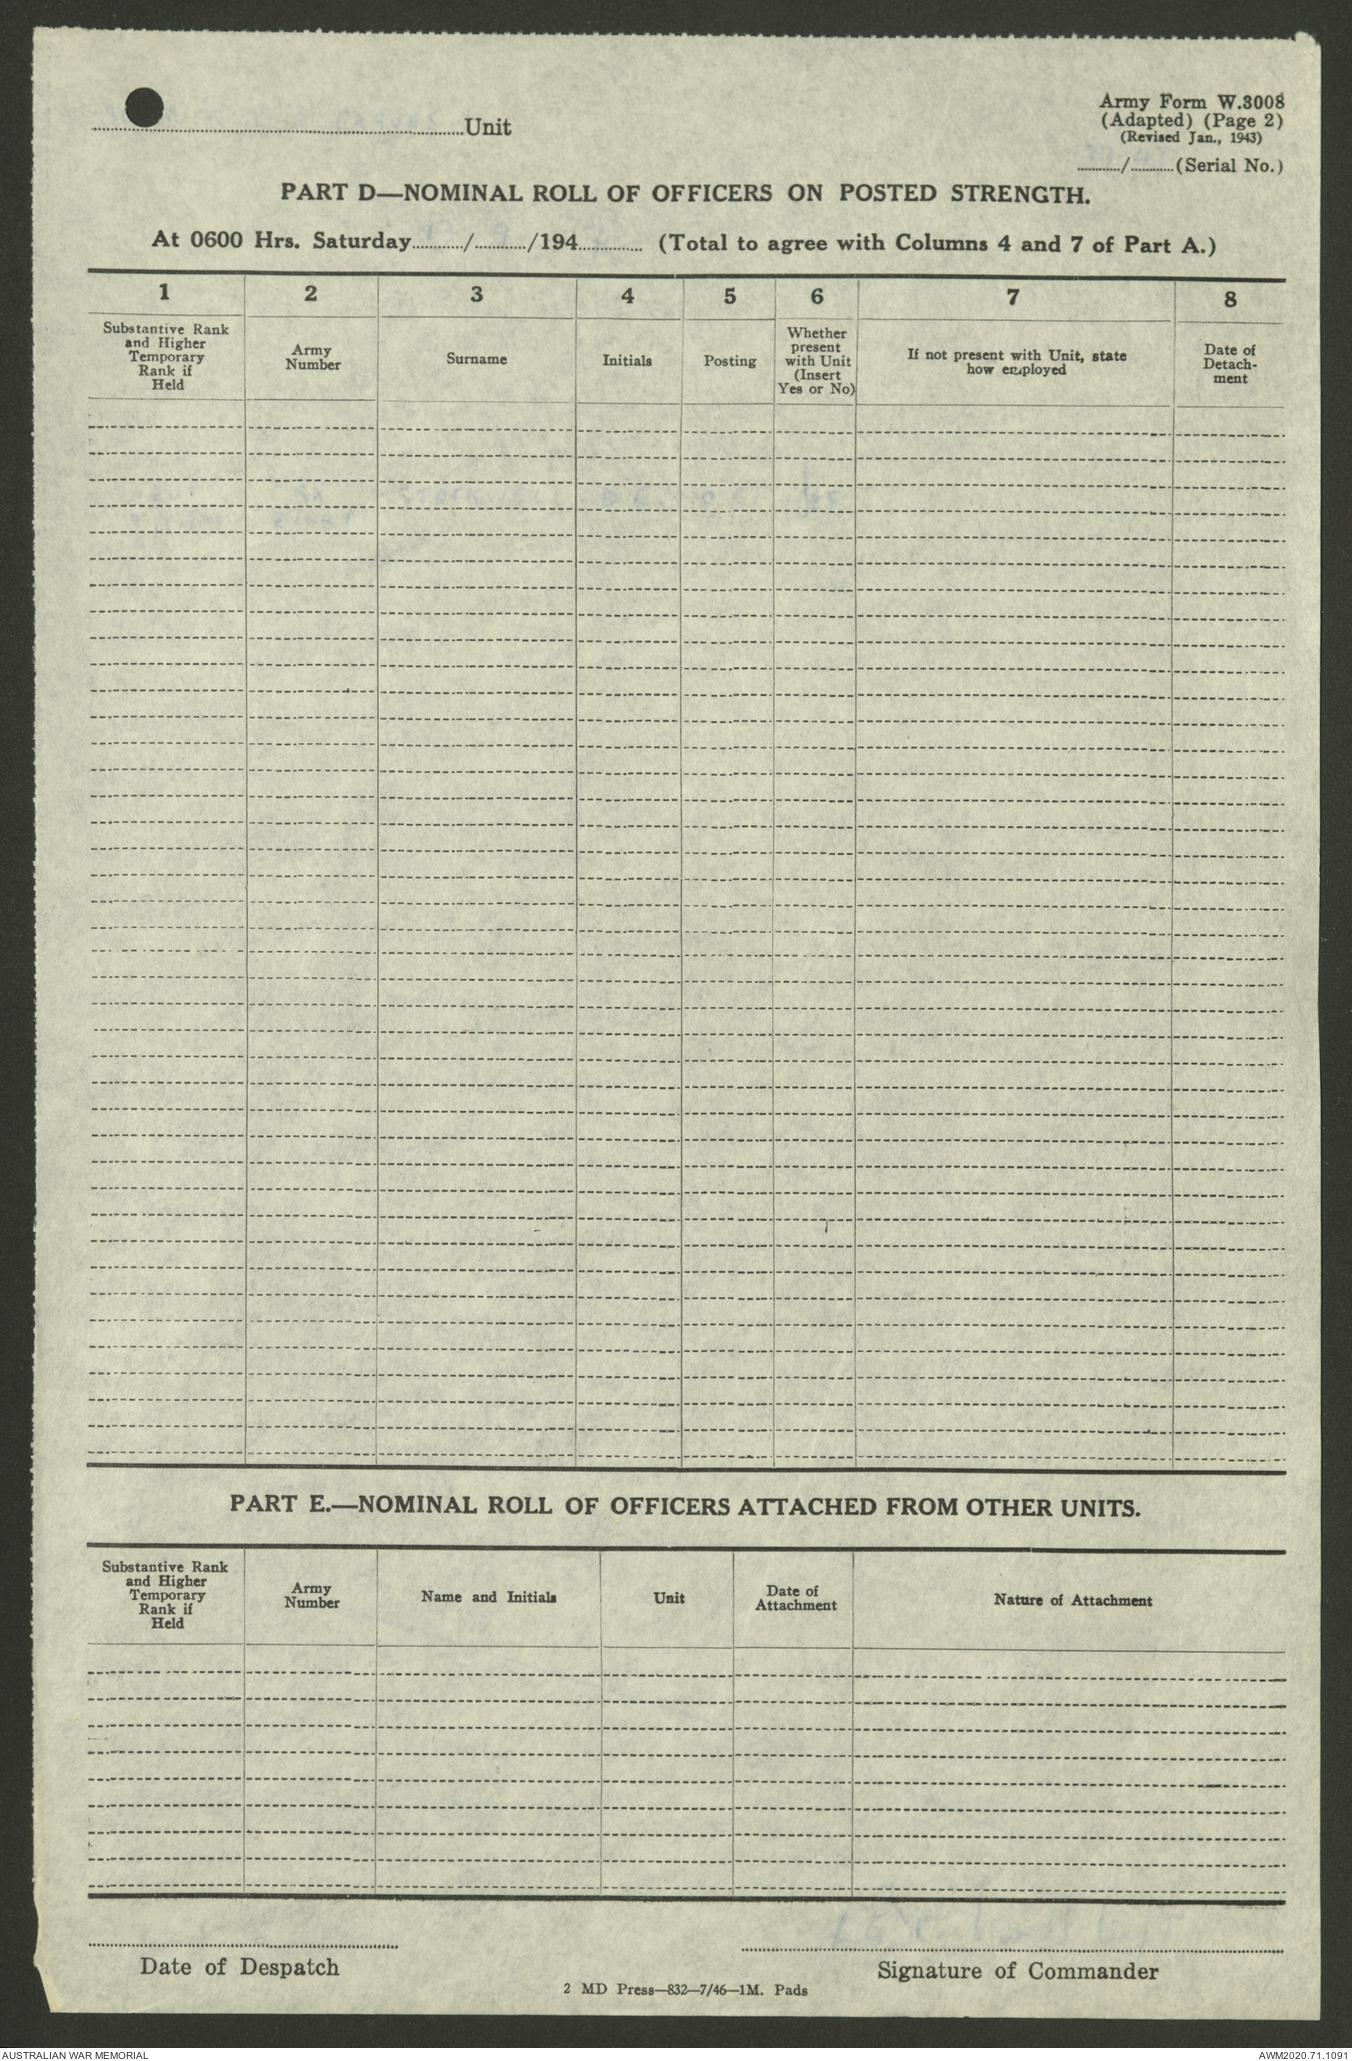 ..........Unit
Army Form W.3008
(Adapted) (Page 2)
(Revised Jan., 1943)
........../..........(Serial No.)
PART D—NOMINAL ROLL OF OFFICERS ON POSTED STRENGTH.
At 0600 Hrs. Saturday........../........../194.......... (Total to agree with Columns 4 and 7 of Part A.)
1 2 3 4 5 6 7 8
Substantive Rank
and Higher
Temporary
Rank if
Held
Army
Number
Surname
Initials
Posting
Whether
present
with Unit
(Insert
Yes or No)
If not present with Unit, state
how employed
Date of
Detach-
ment
PART E.—NOMINAL ROLL OF OFFICERS ATTACHED FROM OTHER UNITS.
Substantive Rank
and Higher
Temporary
Rank if
Held
Army
Number
Name and Initials
Unit
Date of
Attachment
Nature of Attachment
Date of Despatch
Signature of Commander
2 MD Press—832—7/46—1M. Pads
AUSTRALIAN WAR MEMORIAL
AWM2020.71.1091